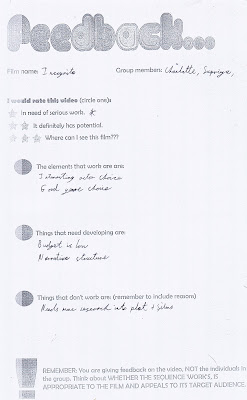 Feedback....
Film name: Incognito Group members: Charlotte,
I would rate this video (circle one):
In need of serious work.
It definitely has potential.
Where can I see this film???
The elements that work are are:
Interesting actor choice
Good genre choice
Things that need developing are:
Budget is low
Narrative structure
Things that don't work are: (remember to include reasons)
Needs more research into plot +
REMEMBER: You are giving feedback on the video, NOT the individuals in
the group. Think about WHETHER THE SEQUENCE WORKS, IS
APPROPRIATE TO THE FILM AND APPEALS TO ITS TARGET AUDIENCE.